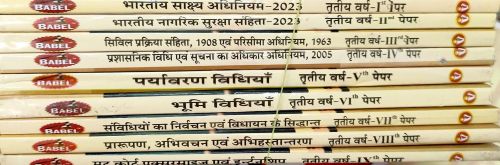 BABEL भारतीय साक्ष्य अधिनियम-2023 तृतीय वर्ष-Ist पेपर
BABEL भारतीय नागरिक सुरक्षा संहिता-2023 तृतीय वर्ष-IInd पेपर
BABEL सिविल प्रक्रिया संहिता, 1908 एवं परिसीमा अधिनियम, 1963 तृतीय वर्ष-IIIrd पेपर
BABEL प्रशासनिक विधि एवं सूचना का अधिकार अधिनियम, 2005 तृतीय वर्ष-IVth पेपर
BABEL पर्यावरण विधियाँ तृतीय वर्ष-Vth पेपर
BABEL भूमि विधियाँ तृतीय वर्ष-VIth पेपर
BABEL संविधियों का निर्वचन एवं विधायन के सिद्धान्त तृतीय वर्ष-VIIth पेपर
BABEL प्रारूपण, अभिवचन एवं अभिहस्तान्तरण तृतीय वर्ष-VIIIth पेपर
BABEL मूट कोर्ट एक्सरसाइज एवं इन्टर्नशिप तृतीय वर्ष-IXth पेपर